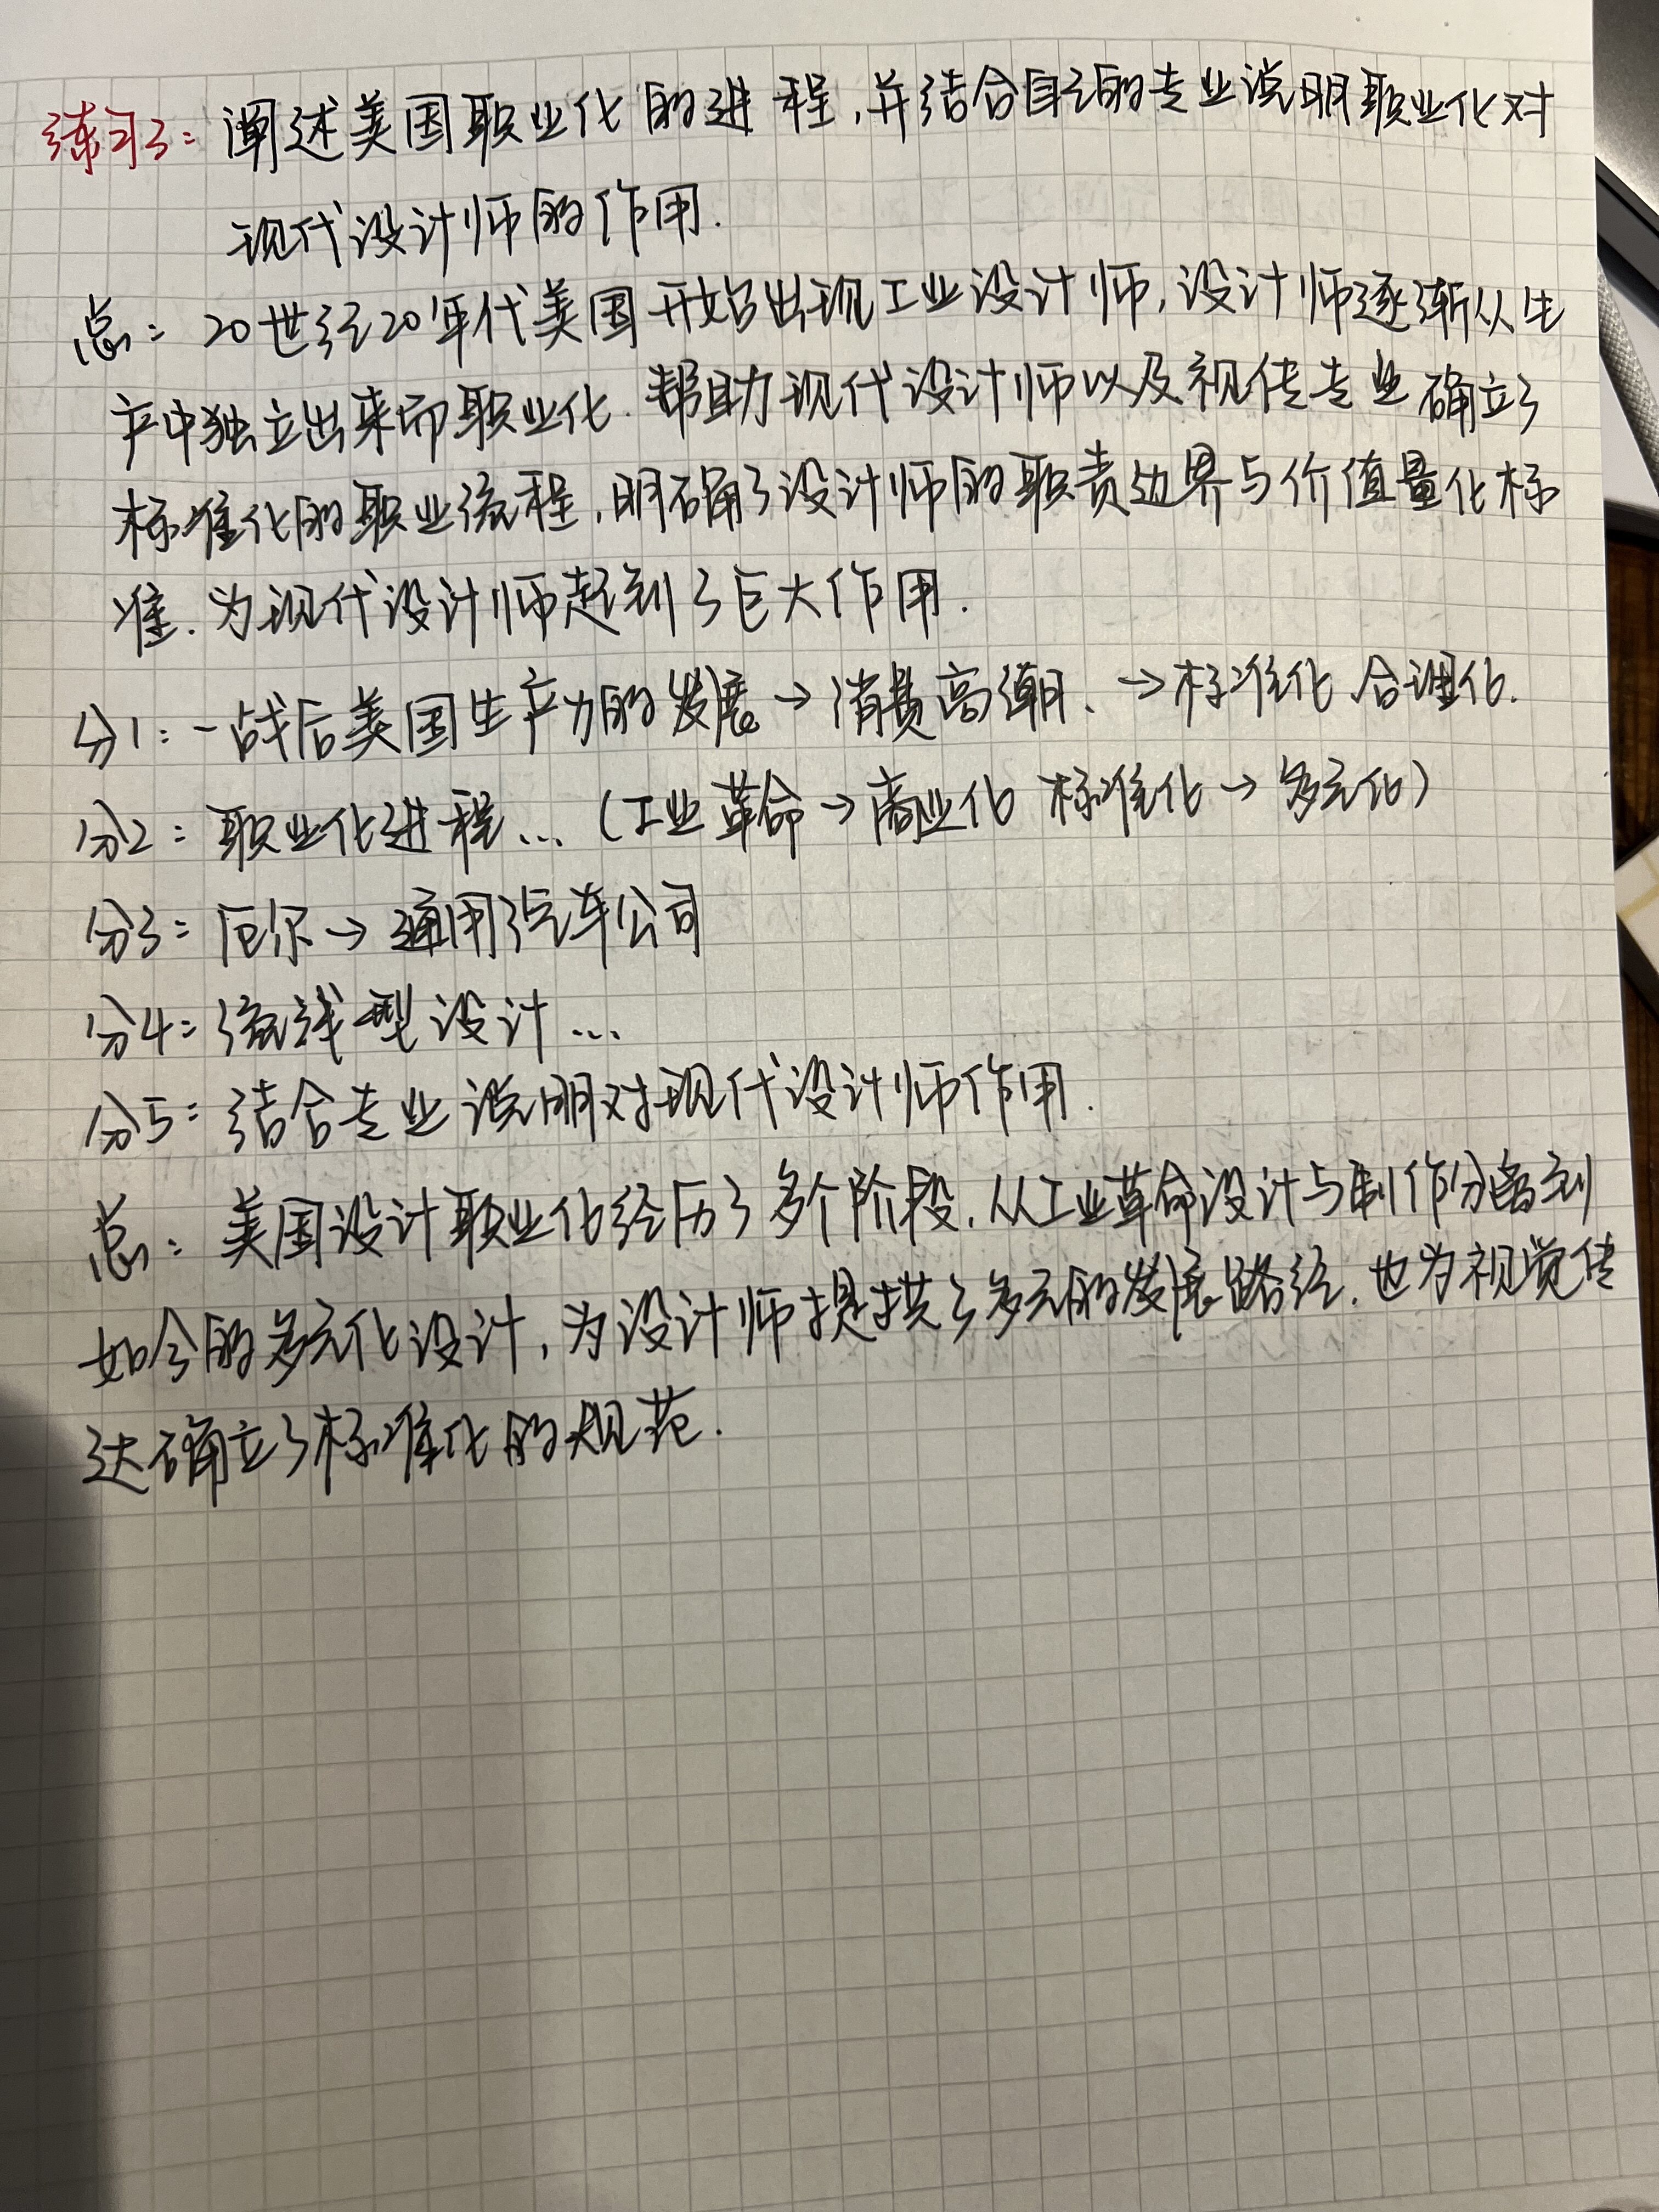 练习3：阐述美国职业化的进程，并结合自己的专业说明职业化对
现代设计师的作用．
总：20世纪20年代美国开始出现工业设计师，设计师逐渐从生
产中独立出来而职业化．帮助现代设计师以及视传专业确立了
标准化的职业流程，明确了设计师的职责边界与价值量化标
准．为现代设计师起到了巨大作用．
分1：一战后美国生产力的发展→消费高潮、→标准化、合理化．
分2：职业化进程...（工业革命→商业化 标准化→多元化）
分3：厄尔→通用汽车公司
分4：流线型设计...
分5：结合专业说明对现代设计师作用．
总：美国设计职业化经历了多个阶段，从工业革命设计与制作分离到
如今的多元化设计，为设计师提拱了多元的发展路径．也为视觉传
达确立了标准化的规范．